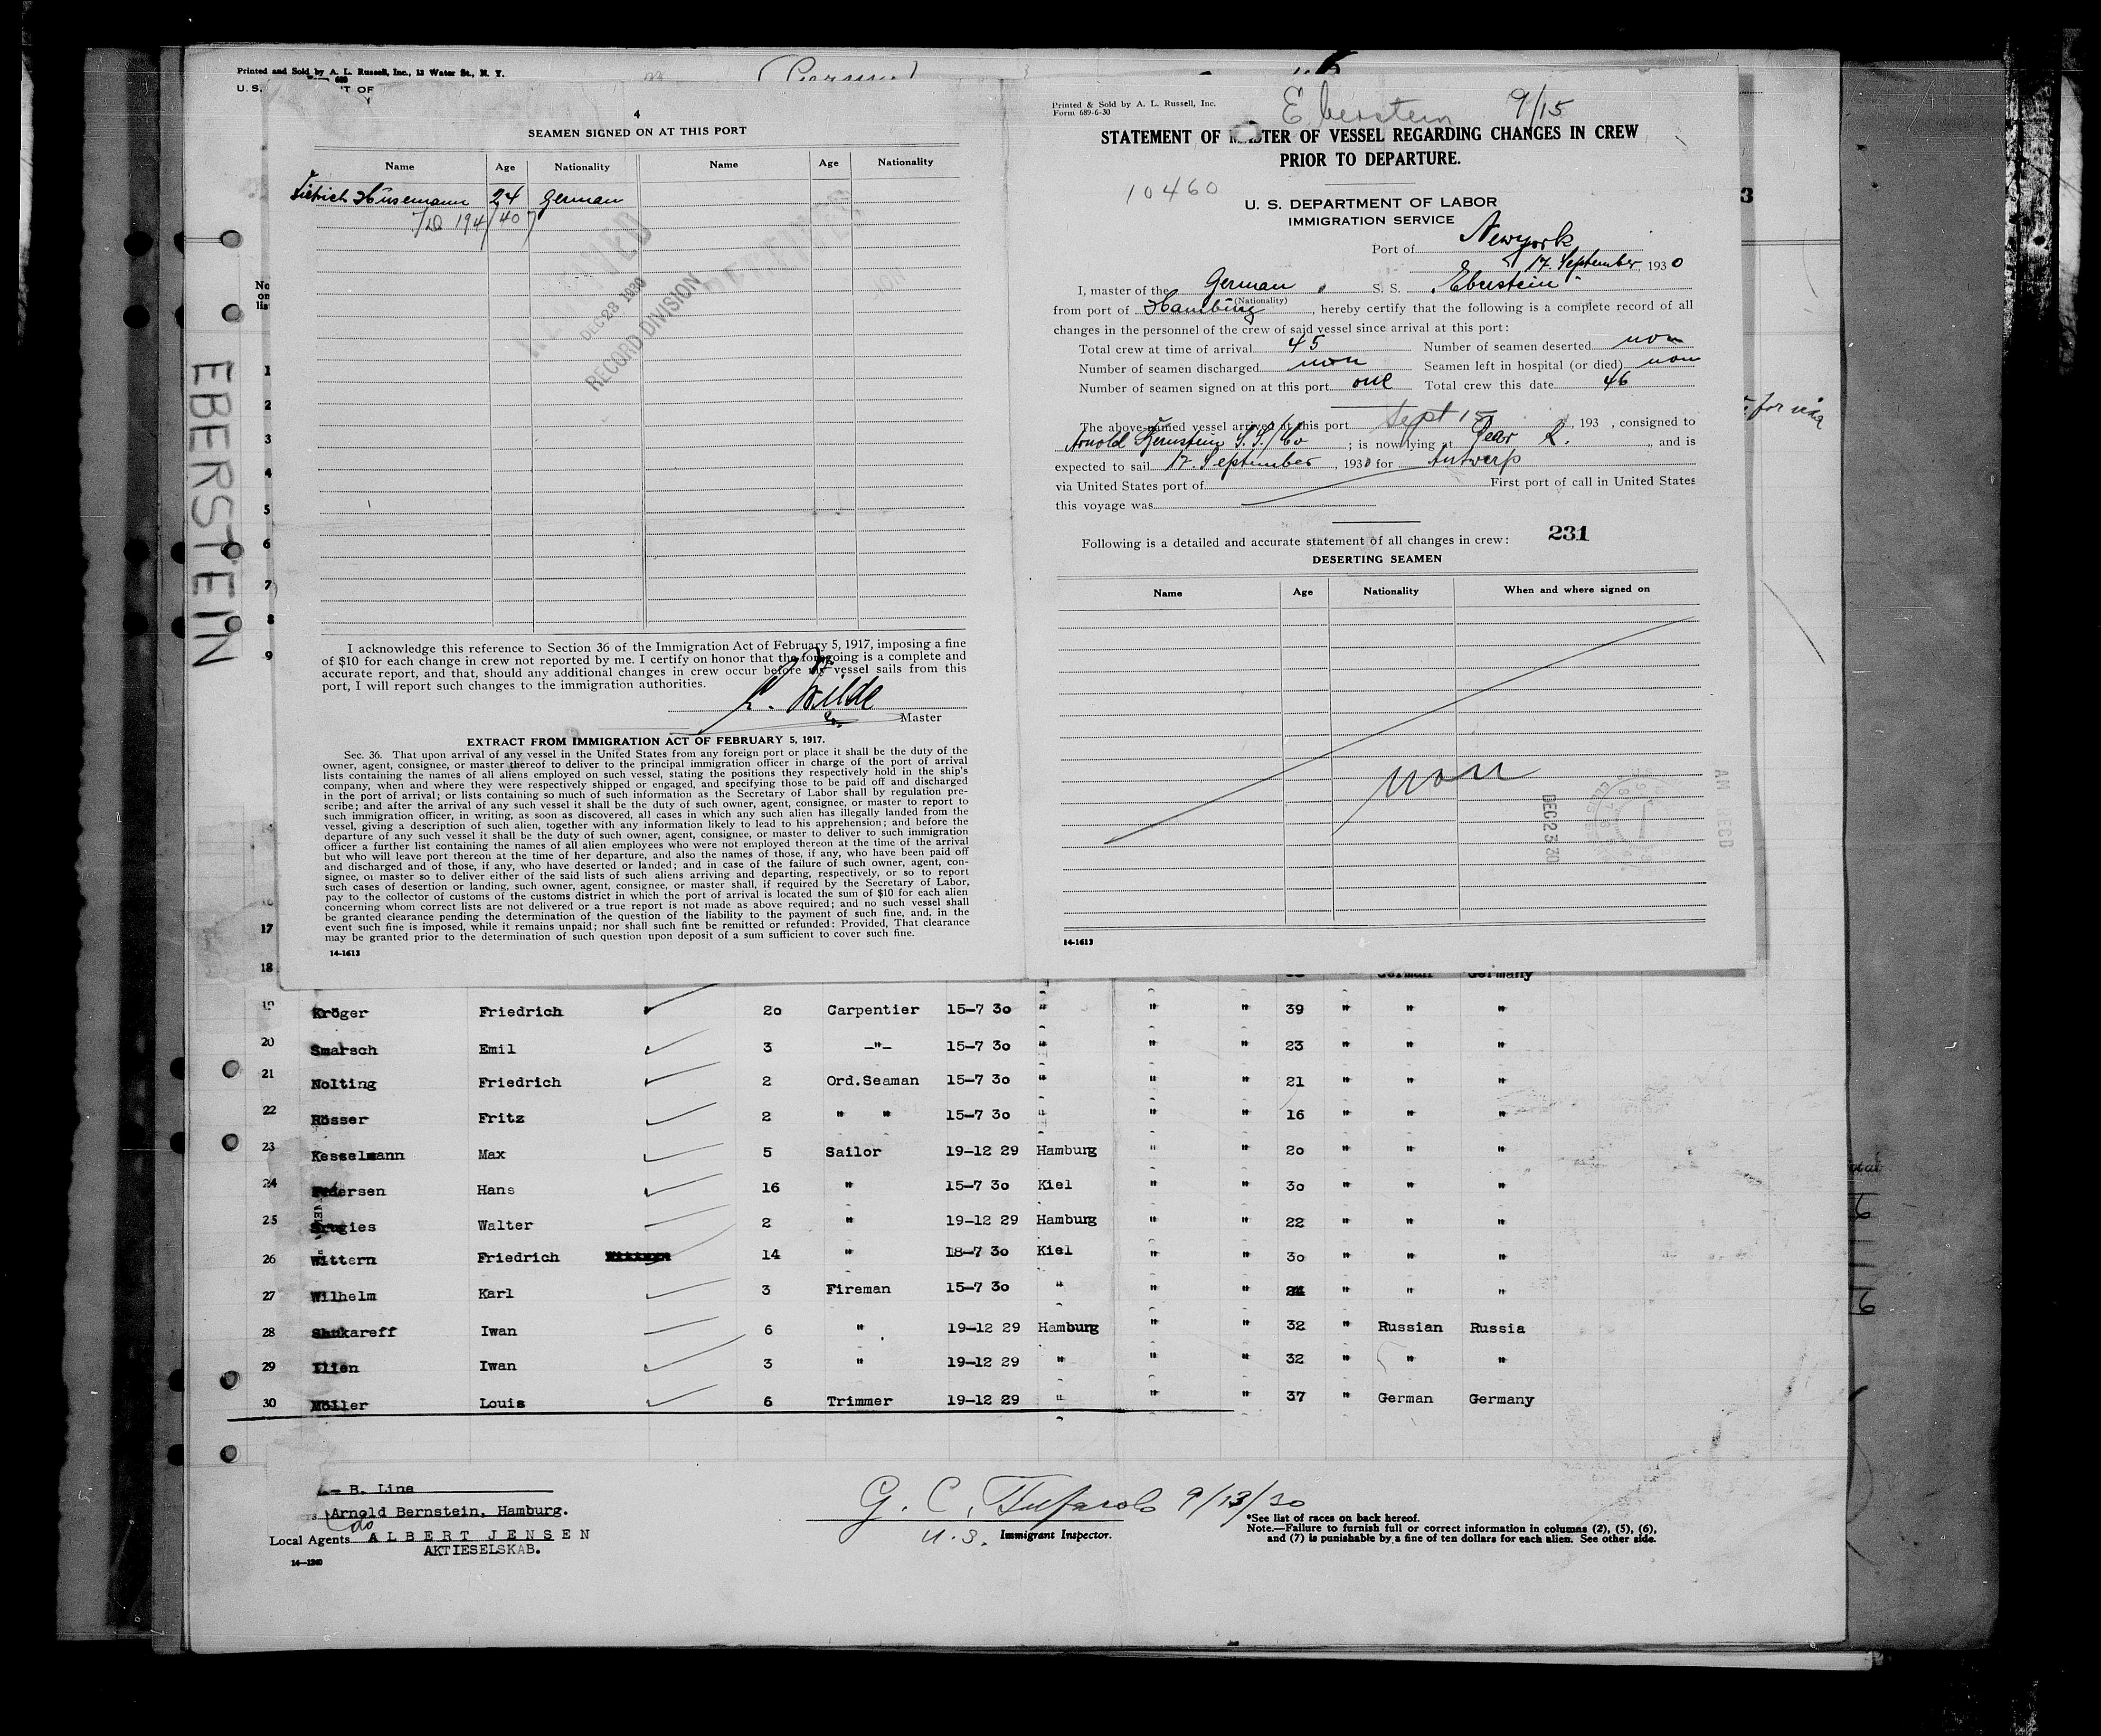 Printed and Sold by A. L. Russell, Inc., 13 Water St., N. Y.
689
U. S.
T OF
EBERSTEIN
4
SEAMEN SIGNED ON AT THIS PORT
Name Age Nationality Name Age Nationality
Husemann 24 German
194/407
DEC 23 1930
RECORD DIVISION
I acknowledge this reference to Section 36 of the Immigration Act of February 5, 1917, imposing a fine
of $10 for each change in crew not reported by me. I certify on honor that the foregoing is a complete and
accurate report, and that, should any additional changes in crew occur before my vessel sails from this
port, I will report such changes to the immigration authorities.
Wilde
Master
EXTRACT FROM IMMIGRATION ACT OF FEBRUARY 5, 1917.
Sec. 36. That upon arrival of any vessel in the United States from any foreign port or place it shall be the duty of the
owner, agent, consignee, or master thereof to deliver to the principal immigration officer in charge of the port of arrival
lists containing the names of all aliens employed on such vessel, stating the positions they respectively hold in the ship's
company, when and where they were respectively shipped or engaged, and specifying those to be paid off and discharged
in the port of arrival; or lists containing so much of such information as the Secretary of Labor shall by regulation pre-
scribe; and after the arrival of any such vessel it shall be the duty of such owner, agent, consignee, or master to report to
such immigration officer, in writing, as soon as discovered, all cases in which any such alien has illegally landed from the
vessel, giving a description of such alien, together with any information likely to lead to his apprehension; and before the
departure of any such vessel it shall be the duty of such owner, agent, consignee, or master to deliver to such immigration
officer a further list containing the names of all alien employees who were not employed thereon at the time of the arrival
but who will leave port thereon at the time of her departure, and also the names of those, if any, who have been paid off
and discharged and of those, if any, who have deserted or landed; and in case of the failure of such owner, agent, con-
signee, or master so to deliver either of the said lists of such aliens arriving and departing, respectively, or so to report
such cases of desertion or landing, such owner, agent, consignee, or master shall, if required by the Secretary of Labor,
pay to the collector of customs of the customs district in which the port of arrival is located the sum of $10 for each alien
concerning whom correct lists are not delivered or a true report is not made as above required; and no such vessel shall
be granted clearance pending the determination of the question of the liability to the payment of such fine, and, in the
event such fine is imposed, while it remains unpaid; nor shall such fine be remitted or refunded: Provided, That clearance
may be granted prior to the determination of such question upon deposit of a sum sufficient to cover such fine.
14-1613
Printed & Sold by A. L. Russell, Inc.
Form 689-6-30
Eberstein 9/15
STATEMENT OF MASTER OF VESSEL REGARDING CHANGES IN CREW
PRIOR TO DEPARTURE.
10460
U. S. DEPARTMENT OF LABOR
IMMIGRATION SERVICE
Port of Newyork
17. September, 1930
I, master of the German S. S. Eberstein
(Nationality)
from port of Hamburg, hereby certify that the following is a complete record of all
changes in the personnel of the crew of said vessel since arrival at this port:
Total crew at time of arrival 45 Number of seamen deserted non
Number of seamen discharged non Seamen left in hospital (or died) non
Number of seamen signed on at this port one Total crew this date 46
The above-named vessel arrived at this port Sept 15, 193 , consigned to
Arnold Bernstein S.S./Co ; is now lying at Pear 2. , and is
expected to sail 17. September, 1930 for Antwerp
via United States port of First port of call in United States
this voyage was
231
Following is a detailed and accurate statement of all changes in crew:
DESERTING SEAMEN
Name Age Nationality When and where signed on
non
DEC 23 30
14-1613
3
No
on
lis
1
2
3
4
5
6
7
8
9
17
18 German Germany
19 Kröger Friedrich 20 Carpentier 15-7 30 " " " 39 " " "
20 Smarsch Emil 3 -"- 15-7 30 " " " 23 " " "
21 Nolting Friedrich 2 Ord.Seaman 15-7 30 " " " 21 " " "
22 Rösser Fritz 2 " " 15-7 30 " " " 16 " " "
23 Kesselmann Max 5 Sailor 19-12 29 Hamburg " " 20 " " "
24 Pedersen Hans 16 " 15-7 30 Kiel " " 30 " " "
25 Walter 2 " 19-12 29 Hamburg " " 22 " " "
26 Wittern Friedrich 14 " 18-7 30 Kiel " " 30 " " "
27 Wilhelm Karl 3 Fireman 15-7 30 " " " 24 " " "
28 Shukareff Iwan 6 " 19-12 29 Hamburg " " 32 " Russian Russia
29 Iwan 3 " 19-12 29 " " " 32 " " "
30 Möller Louis 6 Trimmer 19-12 29 " " " 37 " German Germany
B. Line
Arnold Bernstein, Hamburg.
do
Local Agents ALBERT JENSEN
AKTIESELSKAB.
14-1240
G. C. 9/13/30
U.S. Immigrant Inspector.
*See list of races on back hereof.
Note.—Failure to furnish full or correct information in columns (2), (5), (6),
and (7) is punishable by a fine of ten dollars for each alien. See other side.